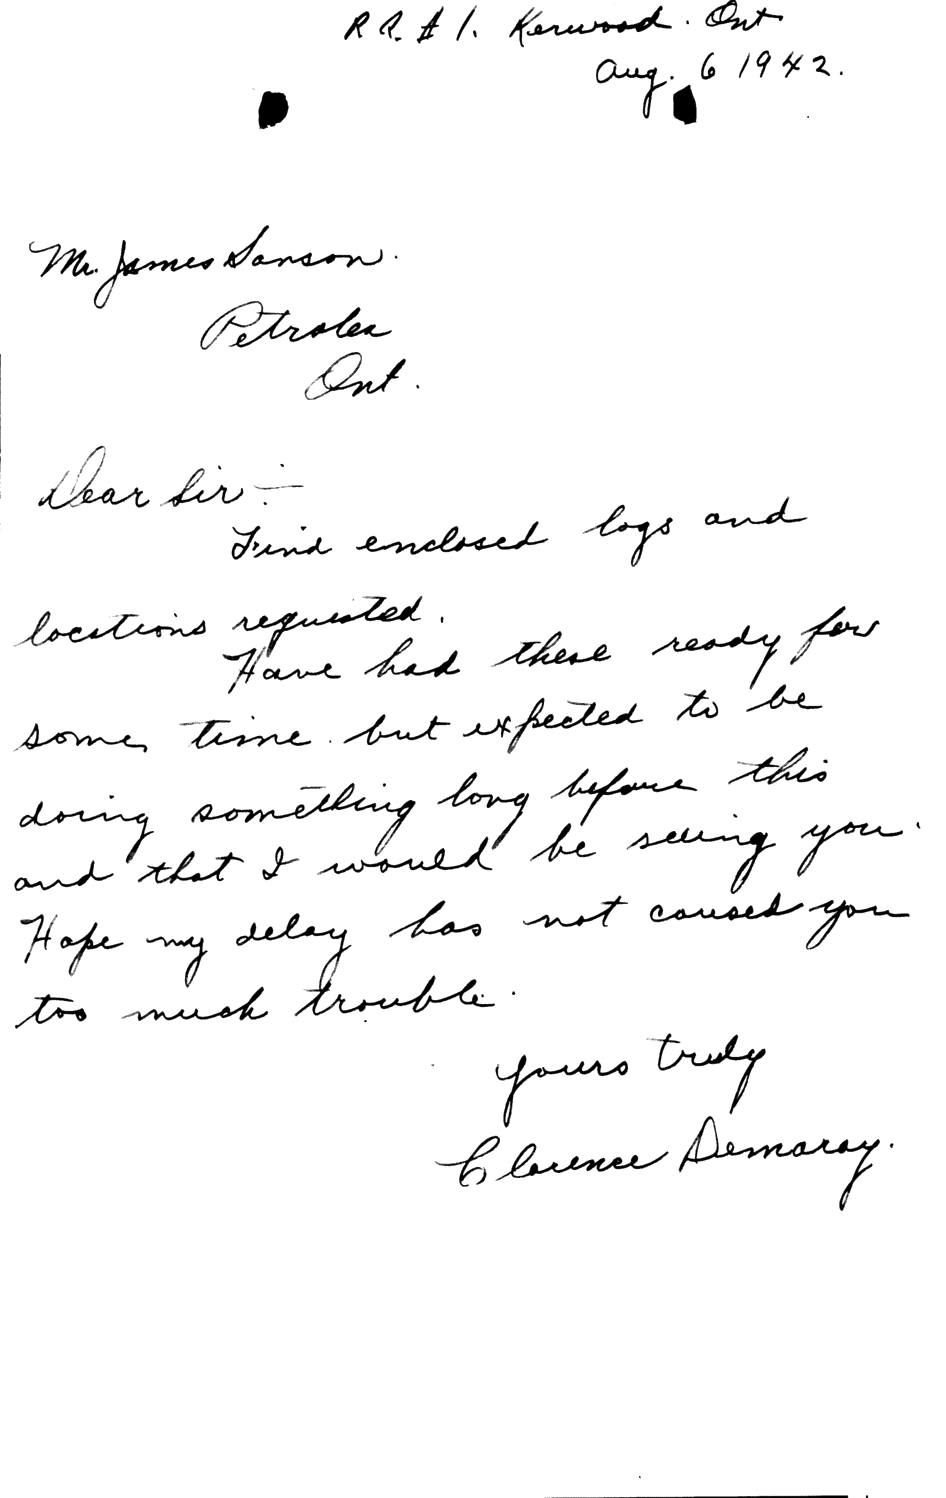 R R. # 1. Kerwood. Ont
Aug. 6 1942.
Mr. James Sanson.
Petrolea
Ont.
Dear Sir :-
Find enclosed logs and
locations requested.
Have had these ready for
some time but expected to be
doing something long before this
and that I would be seeing you.
Hope my delay has not caused you
too much trouble.
Yours truly
Clarence Demaray.